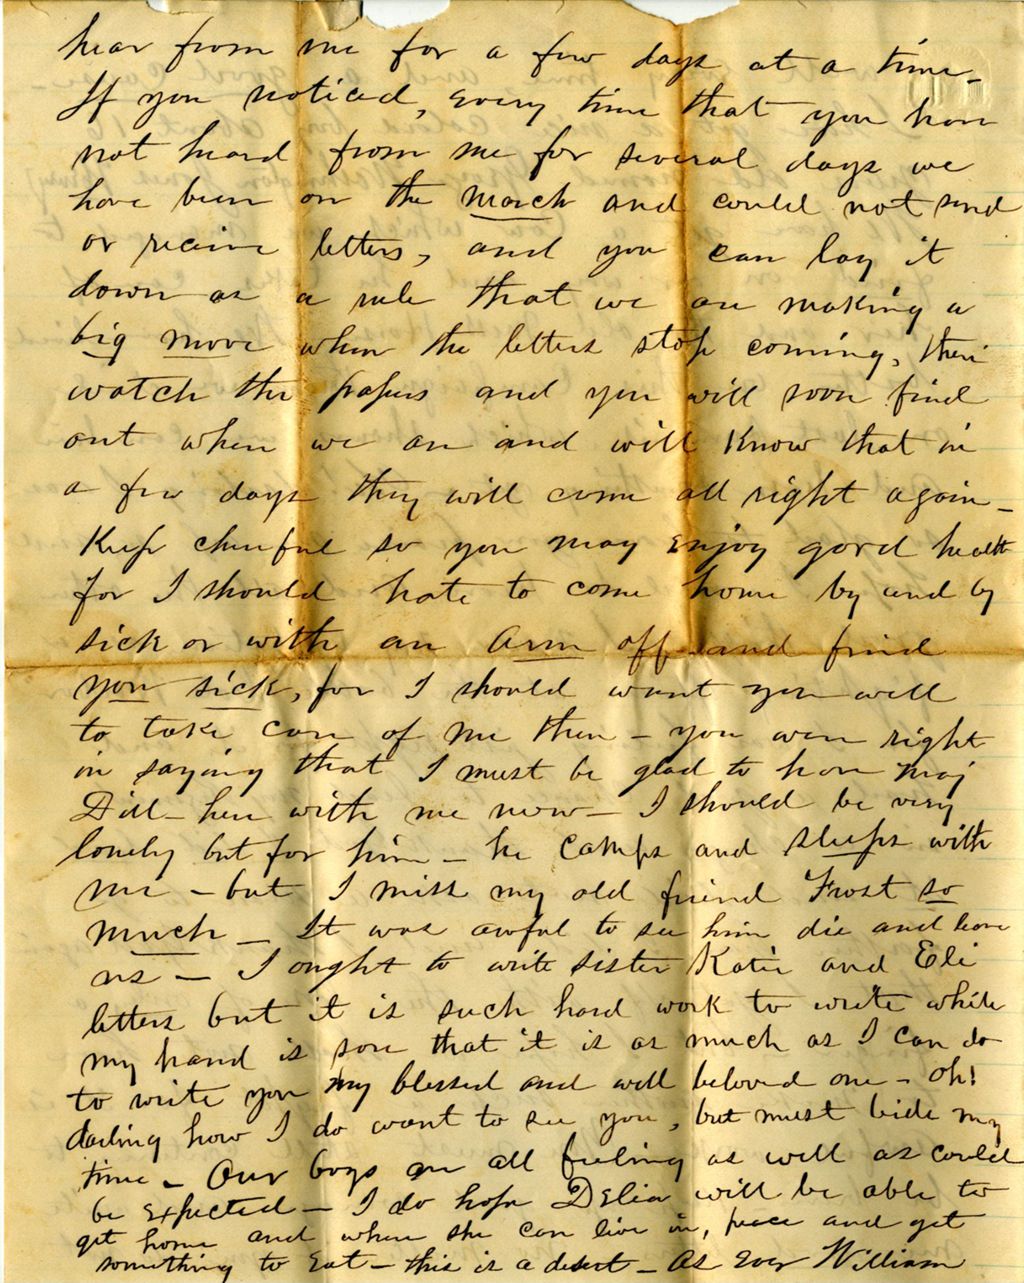 hear from me for a few days at a time -
If you noticed, every time that you have
not heard from me for several days we
have been on the march and could not send
or receive letters, and you can lay it
down as a rule that we are making a
big move when the letters stop coming, then
watch the papers and you will soon find
out when we are and will know that in
a few days they will come all right again -
Keep cheerful so you may enjoy good health
for I should hate to come home by and by
sick or with an arm off and find
you sick, for I should want you well
to take care of me then - you were right
in saying that I must be glad to have Maj
Dill - here with me now - I should be very
lonely but for him - he camps and sleeps with
me - but I miss my old friend Frost so
much - It was awful to see him die and leave
us - I ought to write sister Katie and Eli
letters but it is such hard work to write while
my hand is sore that it is as much as I can do
to write you my blessed and well beloved one - oh!
darling how I do want to see you, but must bide my
time - Our boys are all feeling as well as could
be expected - I do hope Delia will be able to
get home and where she can live in, peace and get
something to eat - this is a desert - As ever William